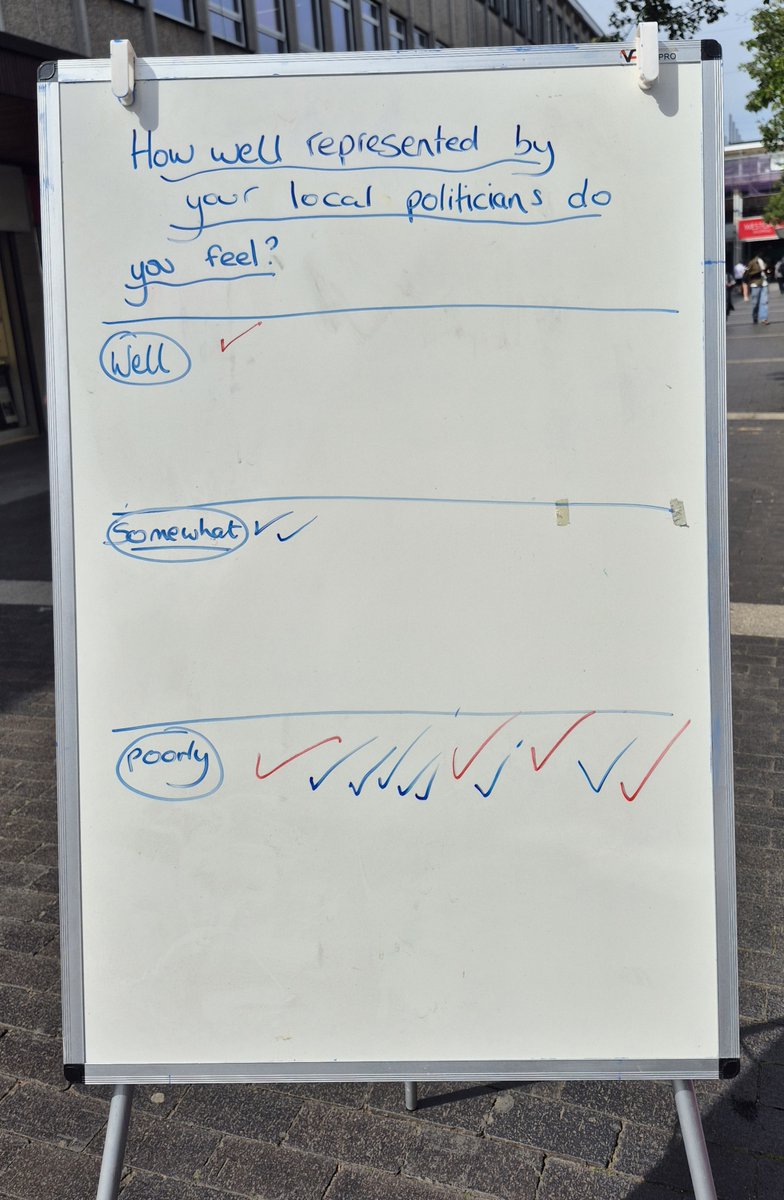 PRO
How well represented by
your local politicians do
you feel?
Well ✓
Somewhat ✓✓
Poorly ✓✓✓✓✓✓✓✓✓✓✓